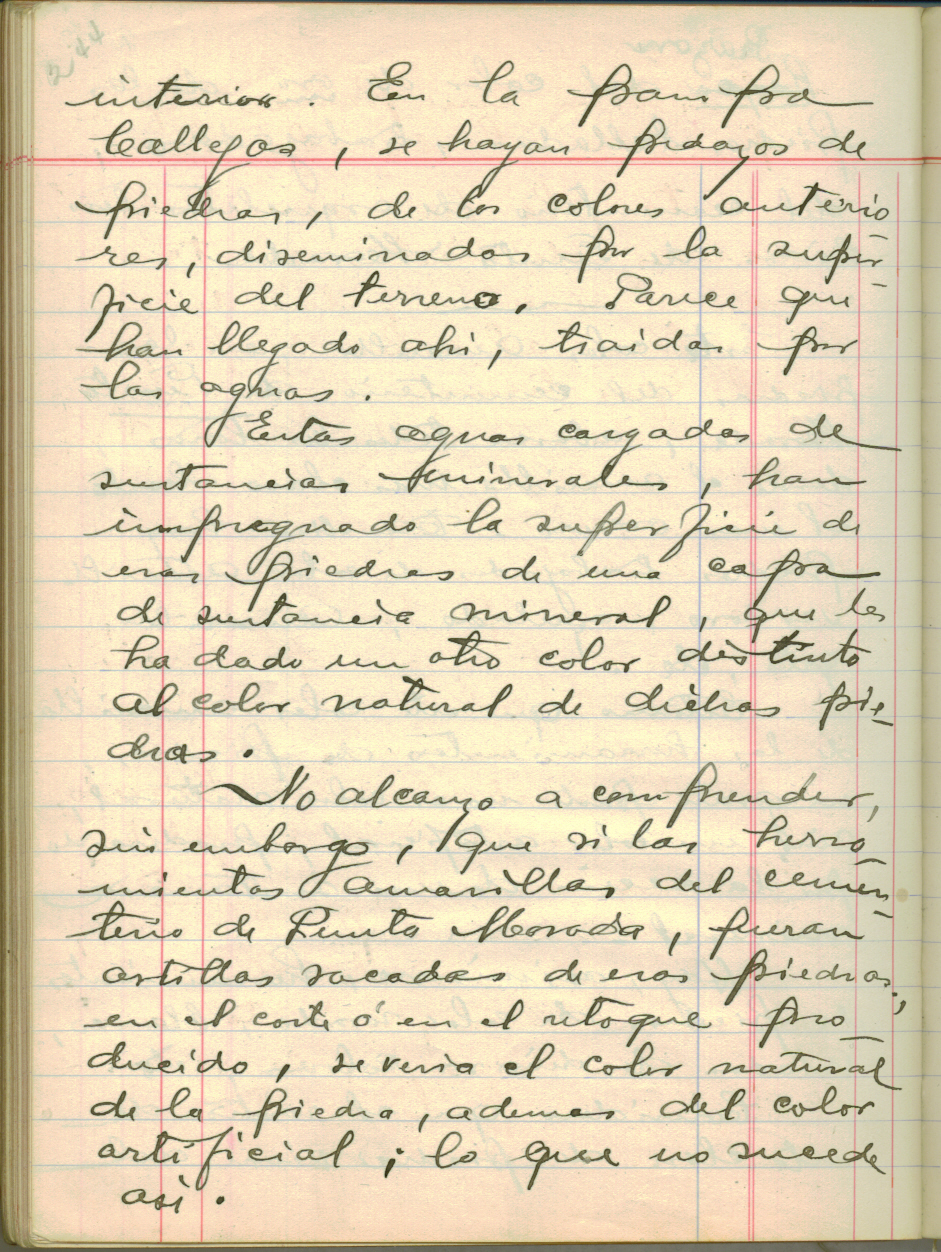 244
interior. En la pampa
Callegos, se hayan pedazos de
piedras, de los colores anterio
res, diseminados por la super-
ficie del terreno. Parece que
han llegado ahi, traidas por
las aguas.
Estas aguas cargadas de
sustancias minerales, han
impregnado la superficie de
esas piedras de una capa
de sustancia mineral, que les
ha dado un otro color distinto
al color natural de dichas pie-
dras.
No alcanzo a comprender,
sin embargo, que si las herra
mientas amarillas del cemen-
terio de Punta Morada, fueran
astillas sacadas de esas piedras,
en el corte ó en el retoque pro-
ducido, se veria el color natural
de la piedra, ademas del color
artificial; lo que no sucede
asi.